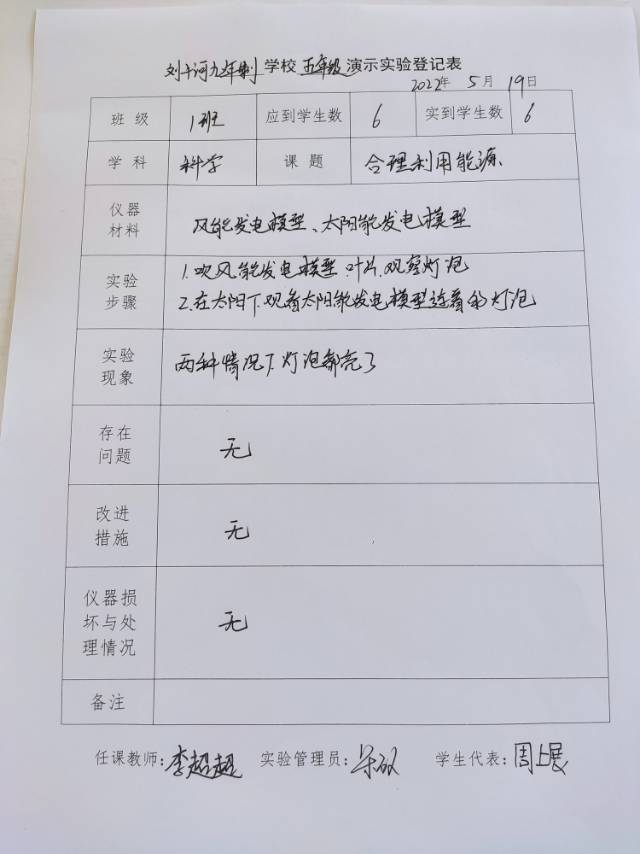 刘十河九年制学校五年级演示实验登记表
2022年5月19日
班级 1班 应到学生数 6 实到学生数 6
学科 科学 课题 合理利用能源
仪器材料 风能发电模型、太阳能发电模型
实验步骤 1.吹风能发电模型叶片,观察灯泡
2.在太阳下,观看太阳能发电模型连着的灯泡
实验现象 两种情况下灯泡都亮了
存在问题 无
改进措施 无
仪器损坏与处理情况 无
备注
任课教师:李超超 实验管理员: 学生代表:周上展